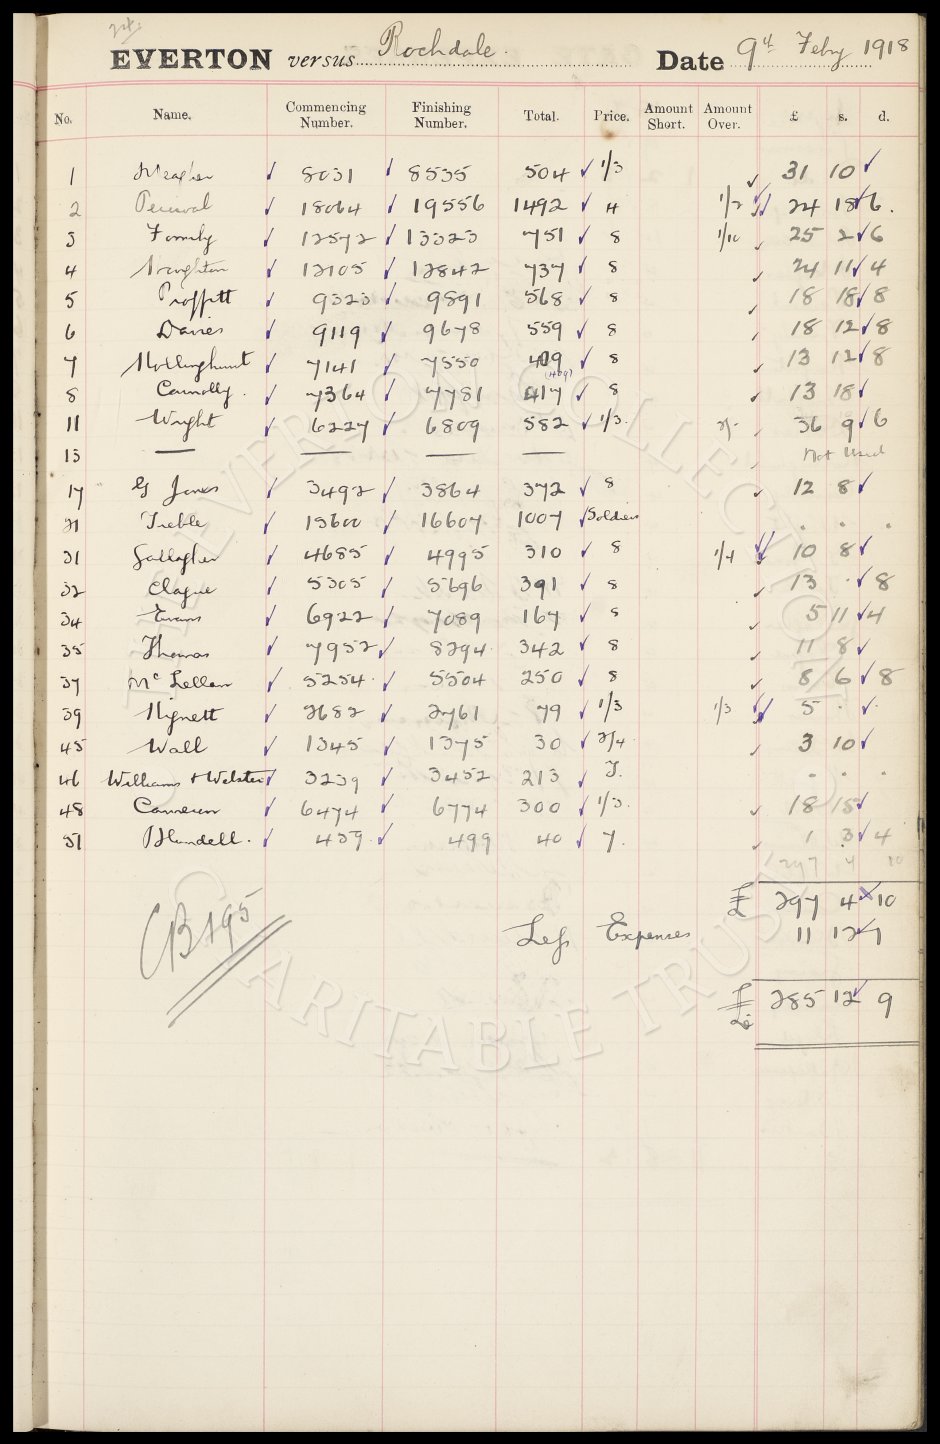 EVERTON versus Rochdale. Date 9th Feby 1918
No. Name. Commencing Number. Finishing Number. Total. Price. Amount Short. Amount Over. £ s. d.
1 Meagher 8031 8535 504 1/3 31 10
2 Percival 18064 19556 1492 4 1/2 24 18 6.
3 Formby 12572 13323 751 8 1/10 25 2 6
4 Naughton 12105 12842 737 8 24 11 4
5 Proffitt 9323 9891 568 8 18 18 8
6 Davies 9119 9678 559 8 18 12 8
7 Hollinghurst 7141 7550 409 8 13 12 8
(409)
8 Connolly. 7364 7781 417 8 13 18
11 Wright 6227 6809 582 1/3. 2/- 36 9 6
13 — — — — Not Used
17 G Jones 3492 3864 372 8 12 8
21 Treble 15600 16607 1007 Soldiers . . .
31 Gallagher 4685 4995 310 8 1/4 10 8
32 Clague 5305 5696 391 8 13 . 8
34 Evans 6922 7089 167 8 5 11 4
35 Thomas 7952 8294 342 8 11 8
37 McLellan 5254 5504 250 8 8 6 8
39 Hignett 2682 2761 79 1/3 1/3 5 . .
45 Wall 1345 1375 30 2/4 3 10
46 Williams + Webster 3239 3452 213 T. . . .
48 Cameron 6474 6774 300 1/3. 18 15
51 Blundell. 459 499 40 7. 1 3 4
297 4 10
£ 297 4 10
CB 195
Less Expenses 11 12 1
£ 285 12 9
THE EVERTON COLLECTION
CHARITABLE TRUST